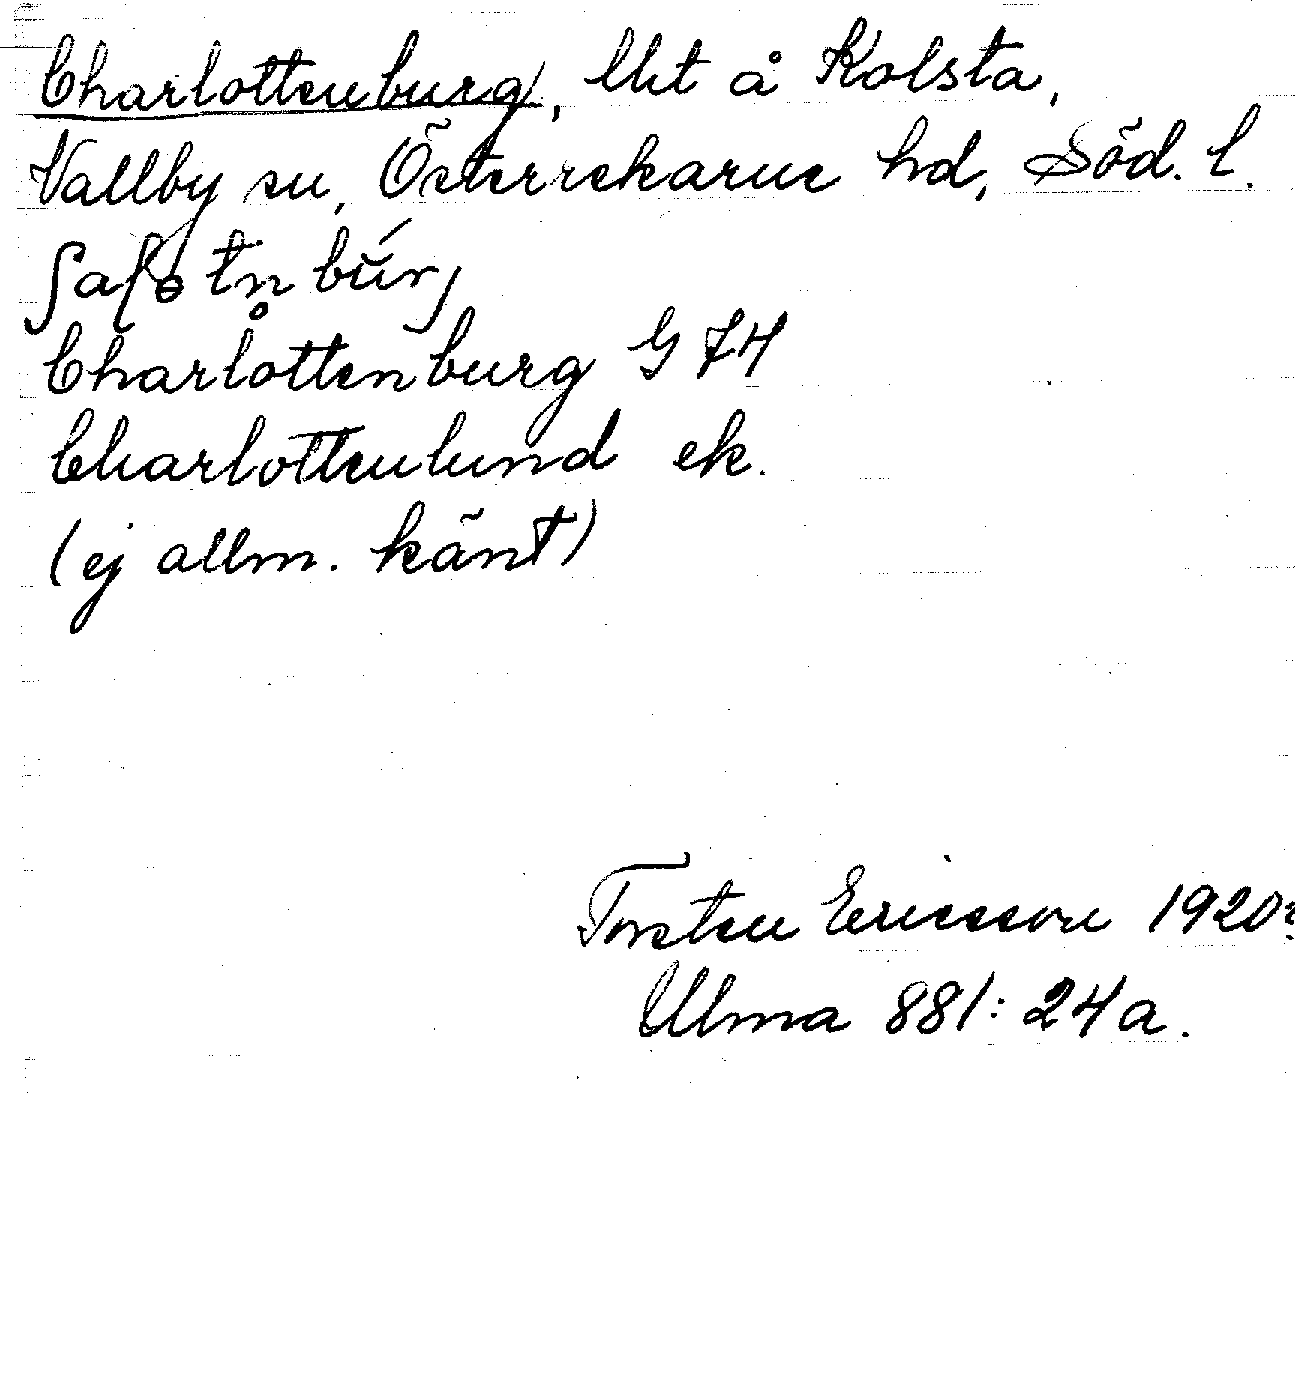 Charlottenburg, lht å Kolsta,
Vallby sn, Österrekarne hd, Söd. l.
Charlottenburg G 74
Charlottenlund ek.
(ej allm. känt)
Torsten Ericsson 1920
Ulma 881:24a.